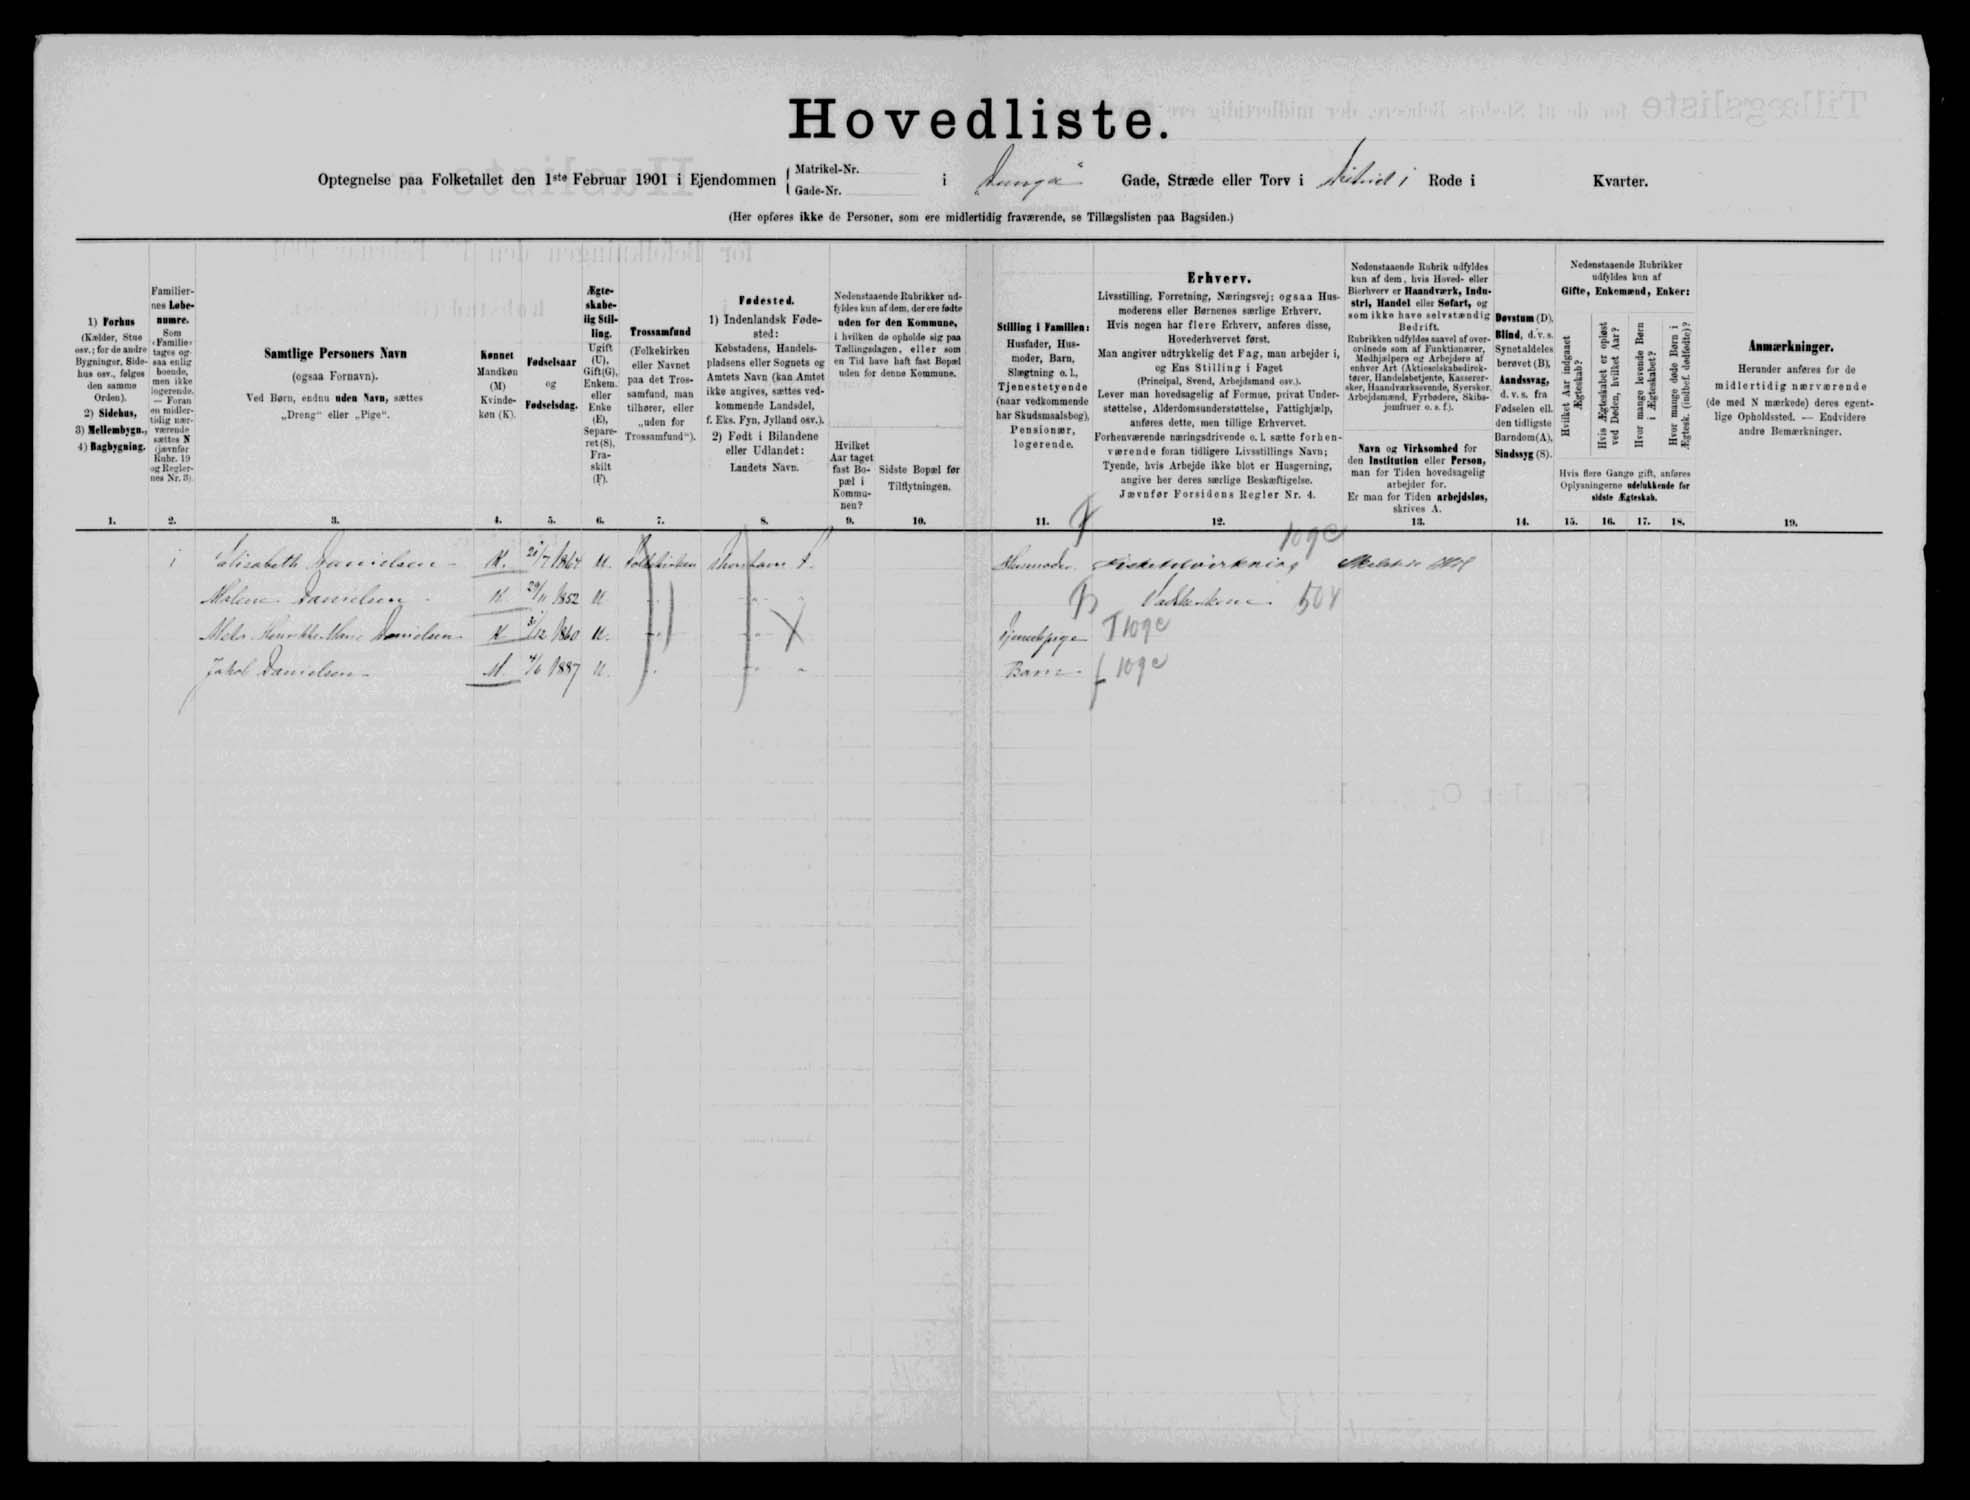 Hovedliste.
Optegnelse paa Folketallet den 1ste Februar 1901 i Ejendommen { Matrikel-Nr. Gade-Nr. i Gade, Stræde eller Torv i Rode i Kvarter.
(Her opføres ikke de Personer, som ere midlertidig fraværende, se Tillægslisten paa Bagsiden.)
1) Forhus
(Kælder, Stue
osv.; for de andre
Bygninger, Side-
hus osv., følges
den samme
Orden).
2) Sidehus,
3) Mellembygn.,
4) Bagbygning.
Familier-
nes Løbe-
numre.
Som
»Familie«
tages og-
saa enlig
boende,
men ikke
logerende.
— Foran
en midler-
tidig nær-
værende
sættes N
(jævnfør
Rubr. 19
og Regler-
nes Nr. 3).
Samtlige Personers Navn
(ogsaa Fornavn).
Ved Børn, endnu uden Navn, sættes
„Dreng“ eller „Pige“.
Kønnet
Mandkøn
(M)
Kvinde-
køn (K).
Fødselsaar
og
Fødselsdag.
Ægte-
skabe-
lig Stil-
ling.
Ugift
(U),
Gift(G),
Enkem.
eller
Enke
(E),
Separe-
ret (S),
Fra-
skilt
(F).
Trossamfund
(Folkekirken
eller Navnet
paa det Tros-
samfund, man
tilhører, eller
„uden for
Trossamfund“).
Fødested.
1) Indenlandsk Føde-
sted:
Købstadens, Handels-
pladsens eller Sognets og
Amtets Navn (kan Amtet
ikke angives, sættes ved-
kommende Landsdel,
f. Eks. Fyn, Jylland osv.).
2) Født i Bilandene
eller Udlandet:
Landets Navn.
Nedenstaaende Rubrikker ud-
fyldes kun af dem, der ere fødte
uden for den Kommune,
i hvilken de opholde sig paa
Tællingsdagen, eller som
en Tid have haft fast Bopæl
uden for denne Kommune.
Hvilket
Aar taget
fast Bo-
pæl i
Kommu-
nen?
Sidste Bopæl før
Tilflytningen.
Stilling i Familien:
Husfader, Hus-
moder, Barn,
Slægtning o. l.,
Tjenestetyende
(naar vedkommende
har Skudsmaalsbog),
Pensionær,
logerende.
Erhverv.
Livsstilling, Forretning, Næringsvej; ogsaa Hus-
moderens eller Børnenes særlige Erhverv.
Hvis nogen har flere Erhverv, anføres disse,
Hovederhvervet først.
Man angiver udtrykkelig det Fag, man arbejder i,
og Ens Stilling i Faget
(Principal, Svend, Arbejdsmand osv.).
Lever man hovedsagelig af Formue, privat Under-
støttelse, Alderdomsunderstøttelse, Fattighjælp,
anføres dette, men tillige Erhvervet.
Forhenværende næringsdrivende o. l. sætte forhen-
værende foran tidligere Livsstillings Navn;
Tyende, hvis Arbejde ikke blot er Husgerning,
angive her deres særlige Beskæftigelse.
Jævnfør Forsidens Regler Nr. 4.
Nedenstaaende Rubrik udfyldes
kun af dem, hvis Hoved- eller
Bierhverv er Haandværk, Indu-
stri, Handel eller Søfart, og
som ikke have selvstændig
Bedrift.
Rubrikken udfyldes saavel af over-
ordnede som af Funktionærer,
Medhjælpere og Arbejdere af
enhver Art (Aktieselskabsdirek-
tører, Handelsbetjente, Kasserer-
sker, Haandværkssvende, Syersker,
Arbejdsmænd, Fyrbødere, Skibs-
jomfruer o. s. f.).
Navn og Virksomhed for
den Institution eller Person,
man for Tiden hovedsagelig
arbejder for.
Er man for Tiden arbejdsløs,
skrives A.
Døvstum (D),
Blind, d. v. s.
Synet aldeles
berøvet (B),
Aandssvag,
d. v. s. fra
Fødselen ell.
den tidligste
Barndom(A),
Sindssyg (S).
Nedenstaaende Rubrikker
udfyldes kun af
Gifte, Enkemænd, Enker:
Hvilket Aar indgaaet
Ægteskab?
Hvis Ægteskabet er opløst
ved Døden, hvilket Aar?
Hvor mange levende Børn
i Ægteskabet?
Hvor mange døde Børn i
Ægtesk. (indbef. dødfødte)?
Hvis flere Gange gift, anføres
Oplysningerne udelukkende for
sidste Ægteskab.
Anmærkninger.
Herunder anføres for de
midlertidig nærværende
(de med N mærkede) deres egent-
lige Opholdssted. — Endvidere
andre Bemærkninger.
1. 2. 3. 4. 5. 6. 7. 8. 9. 10. 11. 12. 13. 14. 15. 16. 17. 18. 19.
109c
1 Elisabeth Danielsen K. 1864 U. Folkekirken Thorshavn Husmoder Fiskevirkning
Malene Danielsen K 29/11 1852 U Vaskekone 504
Henrikke Marie Danielsen K 31/12 1860 U. Tjenestepige 109c
Jakob Danielsen M 4/6 1887 U. Barn 109c